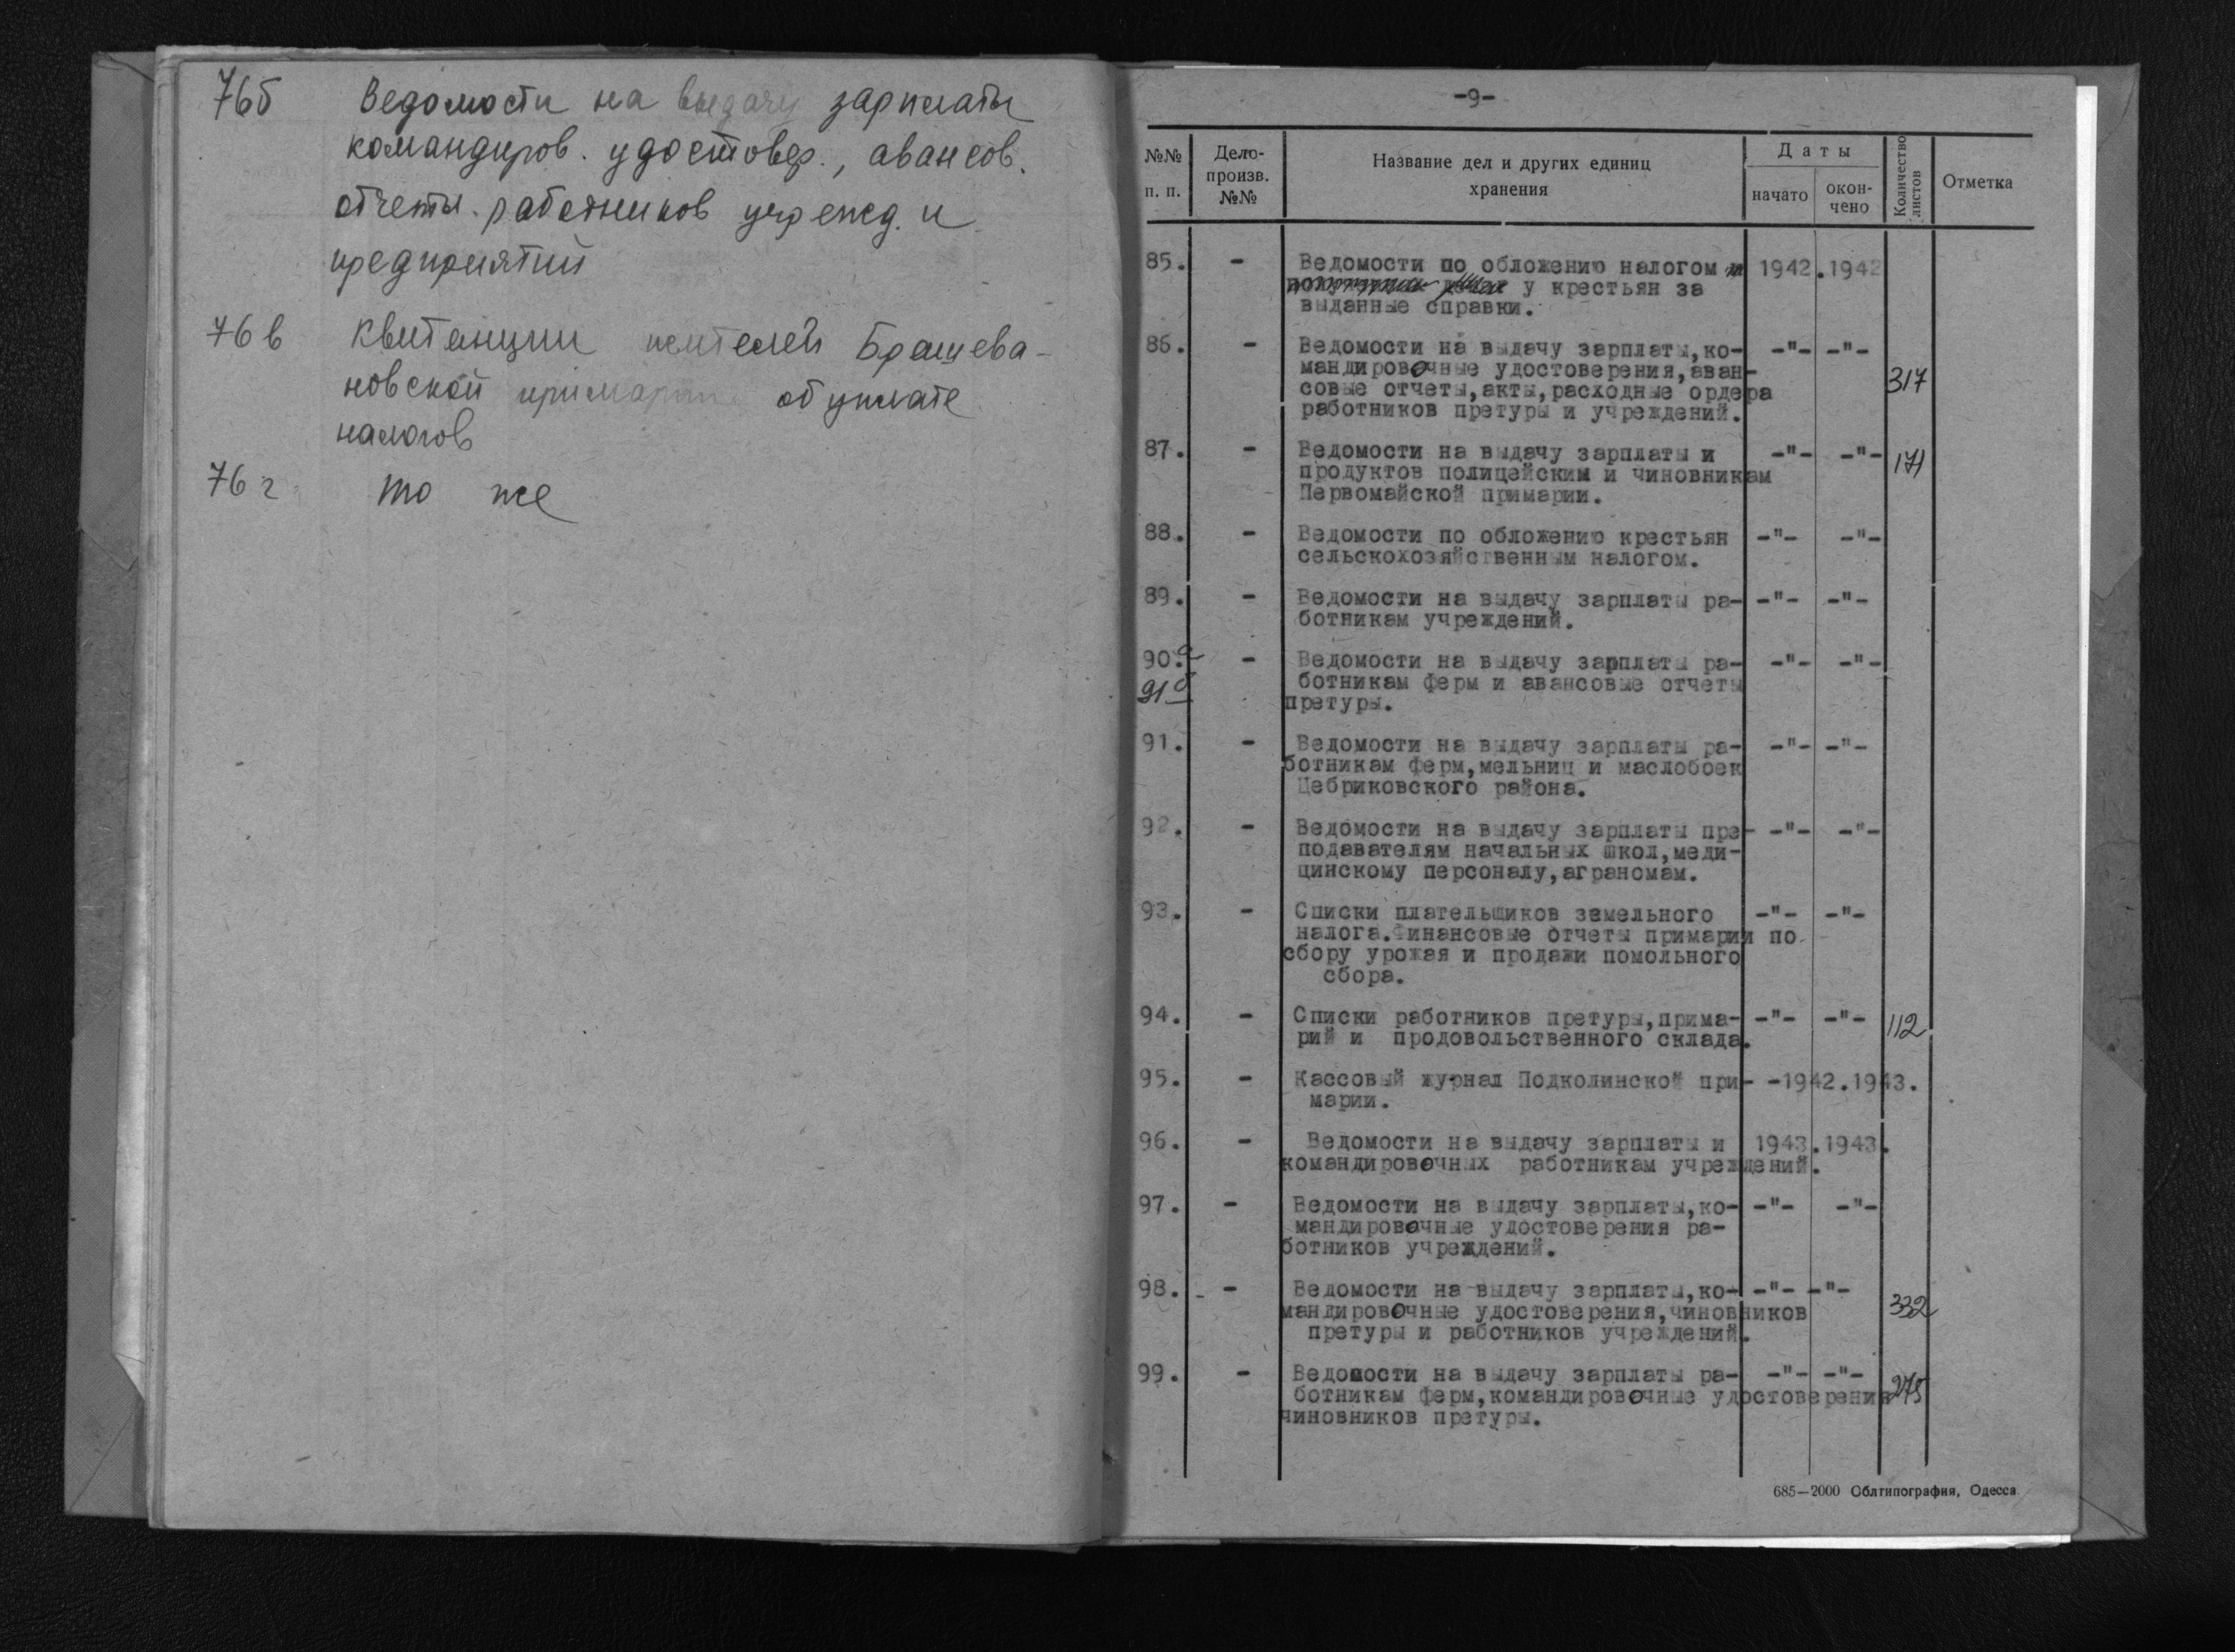 76б Ведомости на выдачу зарплаты
командиров. удостовер., авансов.
отчеты. работников учрежд. и
предприятий
76 в Квитанции жителей Брашева-
новской примарии об уплате
налогов
76 г то же
-9-
№№ п. п. Дело-произв. №№ Название дел и других единиц хранения Даты начато окон-чено Количество листов Отметка
85. - Ведомости по обложению налогом 1942.1942
у крестьян за
выданные справки.
86. - Ведомости на выдачу зарплаты,ко- -"- -"-
мандировочные удостоверения,аван-
совые отчеты,акты,расходные ордера 317
работников претуры и учреждений.
87. - Ведомости на выдачу зарплаты и -"- -"- 171
продуктов полицейским и чиновникам
Первомайской примарии.
88. - Ведомости по обложению крестьян -"- -"-
сельскохозяйственным налогом.
89. - Ведомости на выдачу зарплаты ра- -"- -"-
ботникам учреждений.
90.а - Ведомости на выдачу зарплаты ра- -"- -"-
91 б ботникам ферм и авансовые отчеты
претуры.
91. - Ведомости на выдачу зарплаты ра- -"- -"-
ботникам ферм,мельниц и маслобоек
Цебриковского района.
92. - Ведомости на выдачу зарплаты пре- -"- -"-
подавателям начальных школ,меди-
цинскому персоналу,аграномам.
93. - Списки плательщиков земельного -"- -"-
налога.Финансовые отчеты примарии по
сбору урожая и продажи помольного
сбора.
94. - Списки работников претуры,прима- -"- -"- 112
рий и продовольственного склада.
95. - Кассовый журнал Подколинской при- -1942.1943.
марии.
96. - Ведомости на выдачу зарплаты и 1943.1943.
командировочных работникам учреждений.
97. - Ведомости на выдачу зарплаты,ко- -"- -"-
мандировочные удостоверения ра-
ботников учреждений.
98. - Ведомости на выдачу зарплаты,ко- -"- -"-
мандировочные удостоверения,чиновников 332
претуры и работников учреждений.
99. - Ведомости на выдачу зарплаты ра- -"- -"-
ботникам ферм,командировочные удостоверения 275
чиновников претуры.
685—2000 Облтипография, Одесса